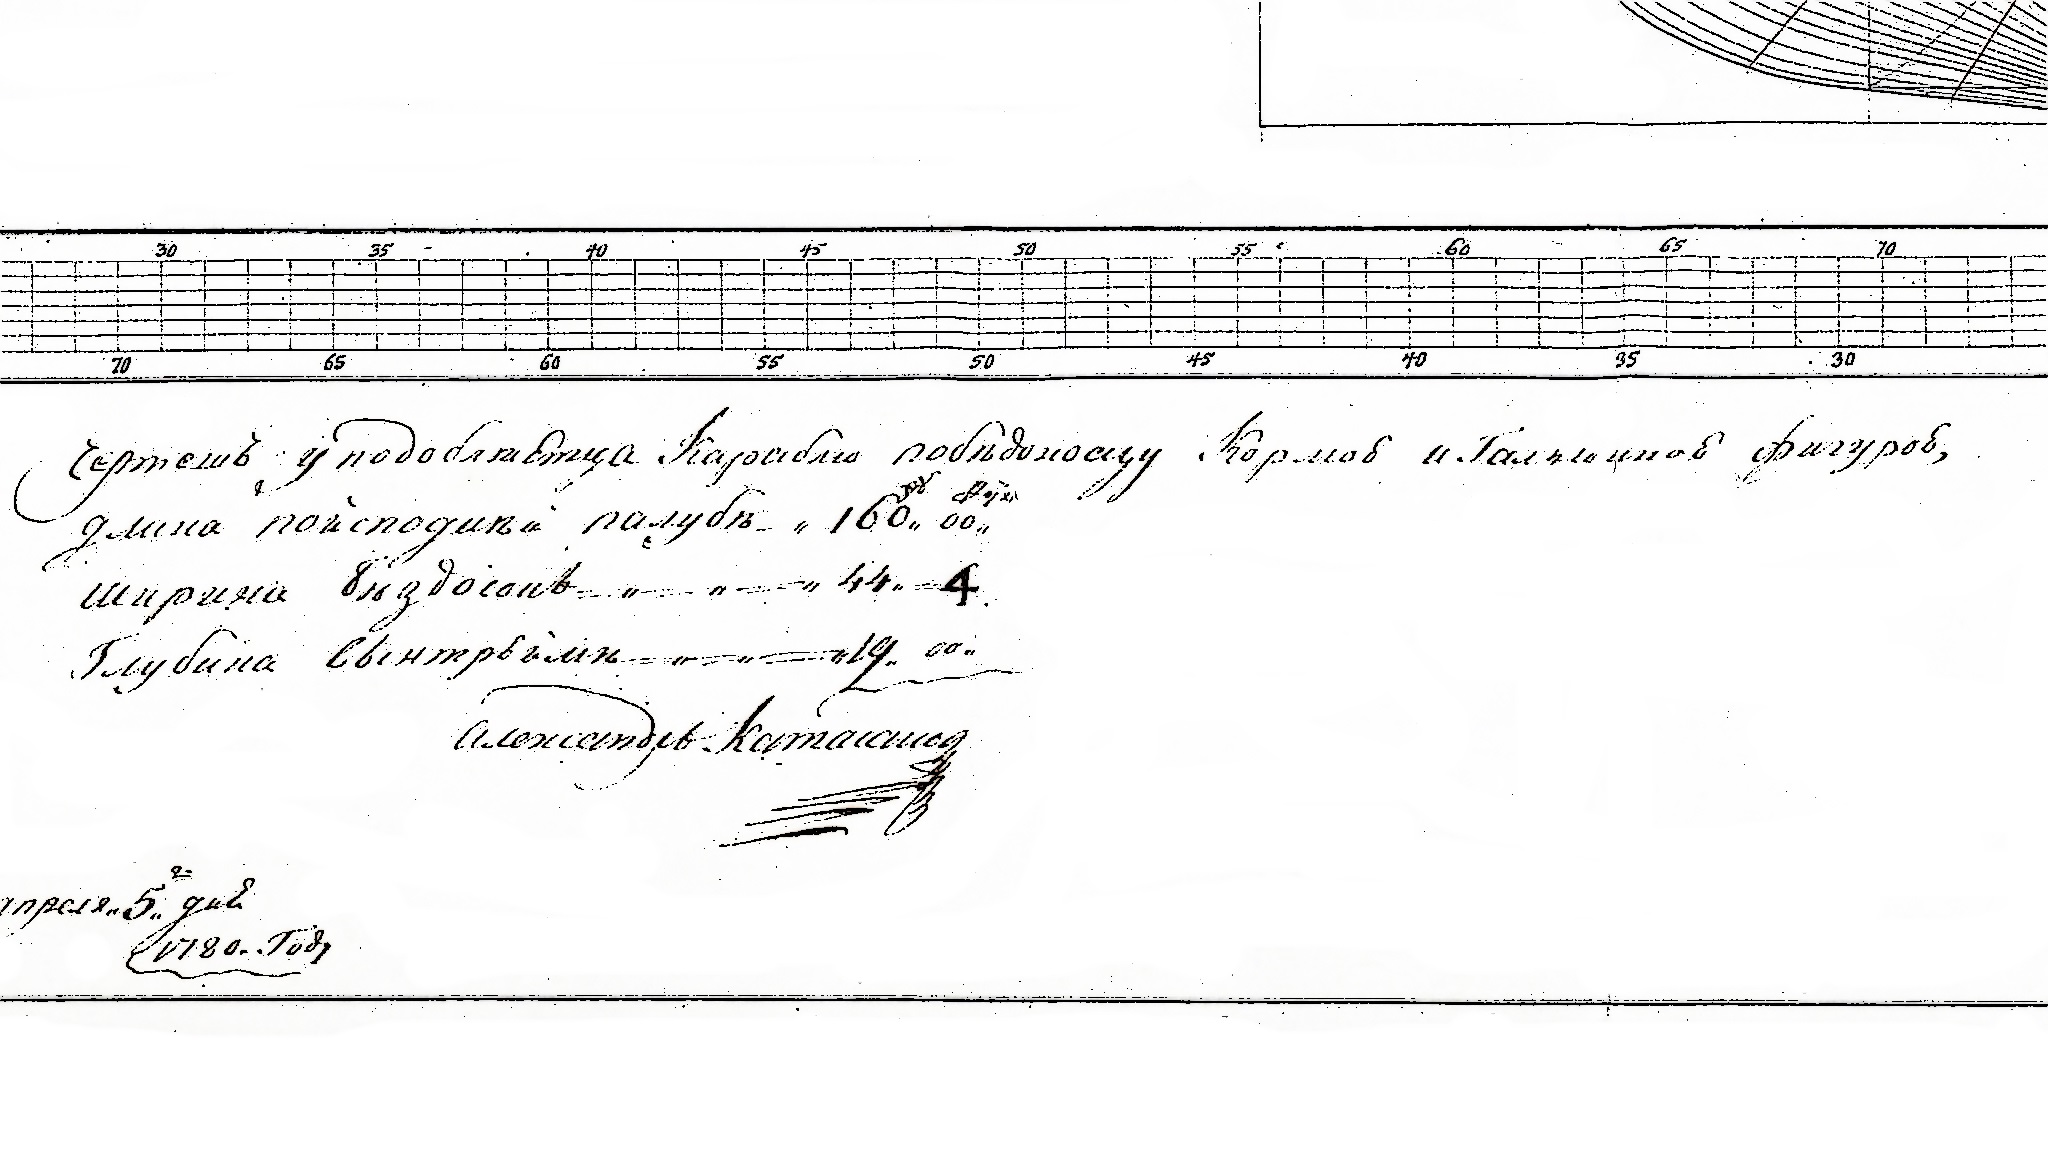 30 35 40 45 50 55 60 65 70
70 65 60 55 50 45 40 35 30
Чертежъ уподобляетца Караблю победоносцу Кормов и Галъюнов фигуров,
фу дуй
длина поисподней палубѣ „ 160 „ 00 „
ширина бѣздосокъ „ „ „ 44 „ 4
Глубина вынтрюмѣ „ „ „ 19 „ 00 „
Александръ Катасанов
апреля „ 5 „ дня
1780 „ Году